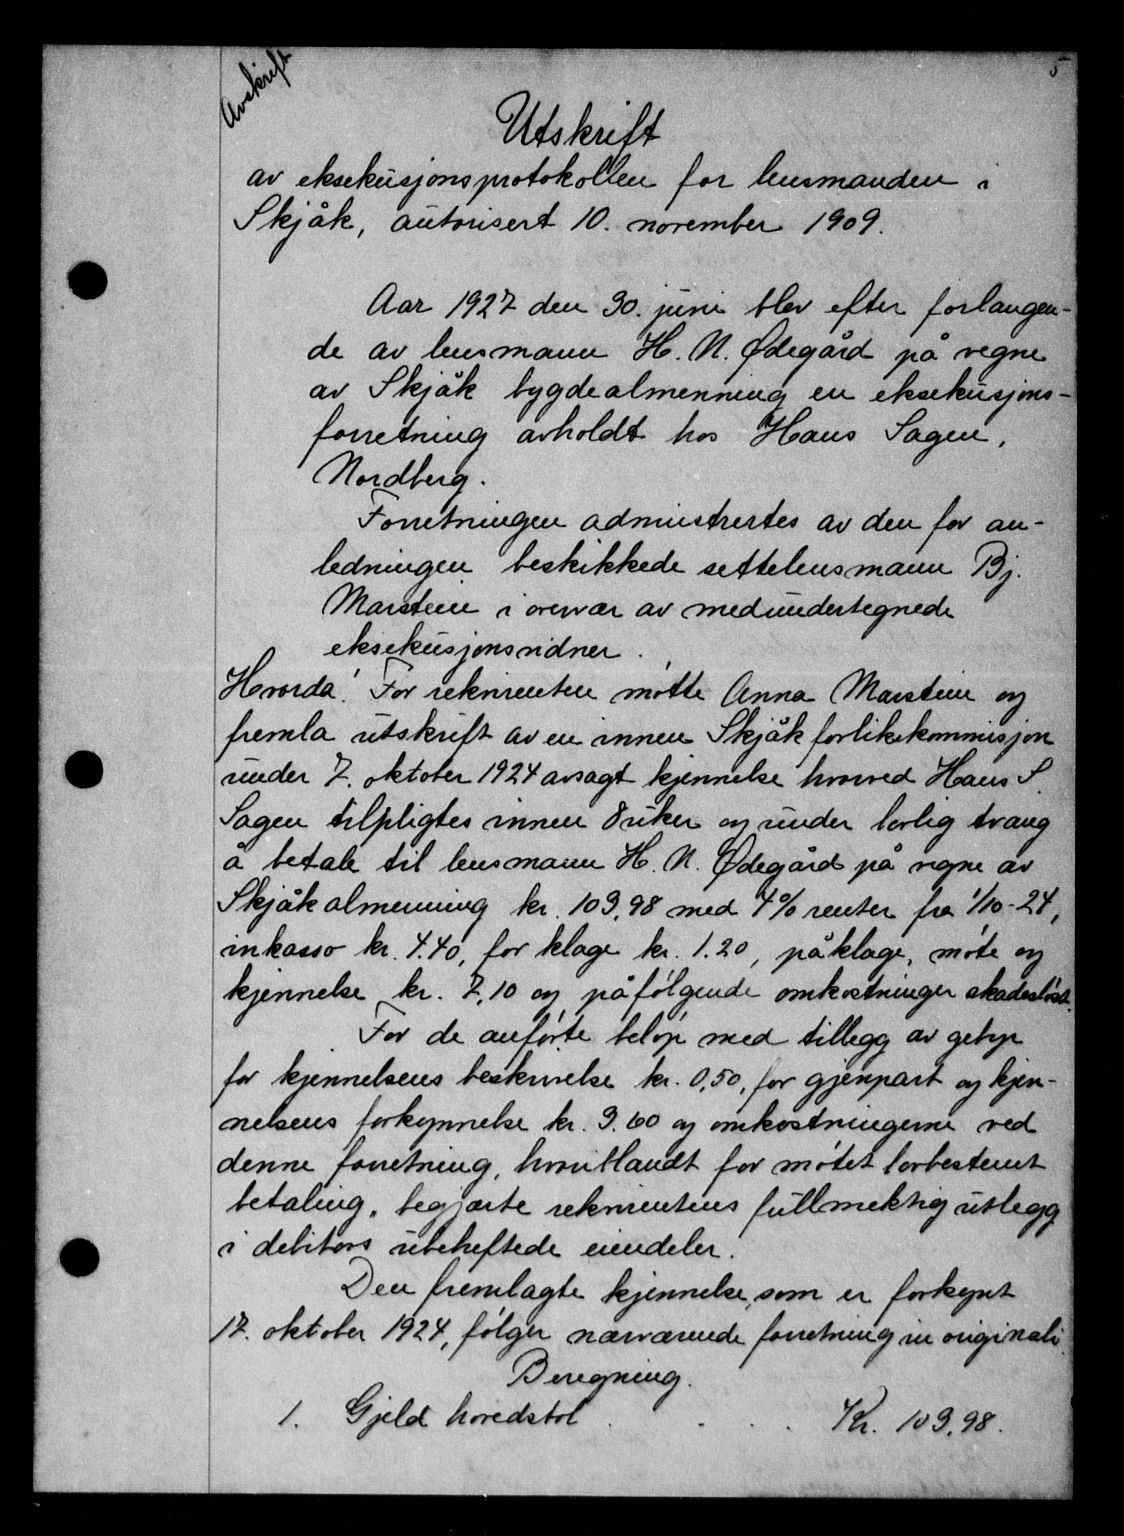 5
Avskrift
Utskrift
av eksekusjonsprotokollen for lensmanden i
Skjåk, autorisert 10. november 1909.
Aar 1927 den 30. juni blev efter forlangen-
de av lensmann H. N. Ødegård på vegne
av Skjåk bygdealmenning en eksekusjons-
forretning avholdt hos Hans Sagen,
Nordberg.
Forretningen admistrertes av den for an-
ledningen beskikkede settelensmann Bj.
Marstein i overvær av medundertegnede
eksekusjonsvidner.
Hvorda! For rekvirenten møtte Anna Marstein og
fremla utskrift av en innen Skjåk forlikskommisjon
under 7. oktober 1924 avsagt kjennelse hvorved Hans S.
Sagen tilpligtes innen 8 uker og under lovlig tvang
å betale til lensmann H. N. Ødegård på vegne av
Skjåk almenning kr. 103,98 med 4% renter fra 1/10-24,
inkasso kr. 4.40, for klage kr. 1.20, påklage, møte og
kjennelse kr. 7,10 og påfølgende omkostninger skadesløst.
For de anførte beløp med tillegg av gebyr
for kjennelsens beskrivelse kr. 0,50, for gjenpart og kjen-
nelsens forkynnelse kr. 3.60 og omkostningerne ved
denne forretning, hvoriblandt for møtet lovbestemt
betaling, begjærte rekvirentens fullmektig utlegg
i debitors ubeheftede eiendeler.
Den fremlagte kjennelse, som er forkynt
17. oktober 1924, følger nærværende forretning in originali.
Beregning.
1. Gjeld hovedstol . . . . Kr. 103.98.